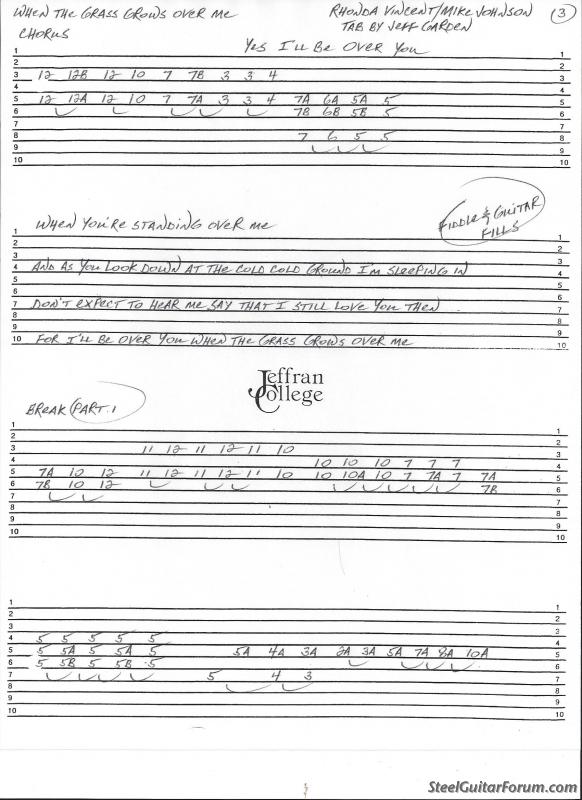 WHEN THE GRASS GROWS OVER ME
RHONDA VINCENT/MIKE JOHNSON
3
CHORUS
TAB BY JEFF GARDEN
YES I'LL BE OVER YOU
1 1
2 2
3 12 12B 12 10 7 7B 3 3 4 3
4
5 12 12A 12 10 7 7A 3 3 4 7A 6A 5A 5 5
6 7B 6B 5B 5 6
7 7
8 7 6 5 5 8
9 9
10 10
WHEN YOU'RE STANDING OVER ME
FIDDLE & GUITAR
FILLS
1 1
2 2
3 3
4 AND AS YOU LOOK DOWN AT THE COLD COLD GROUND I'M SLEEPING IN 4
5 5
6 6
7 DON'T EXPECT TO HEAR ME SAY THAT I STILL LOVE YOU THEN 7
8 8
9 9
10 FOR I'LL BE OVER YOU WHEN THE GRASS GROWS OVER ME 10
Jeffran
College
BREAK PART.1
1 1
2 2
3 11 12 11 12 11 10 3
4 10 10 10 7 7 7 4
5 7A 10 12 11 12 11 12 11 10 10 10A 10 7 7A 7 7A 5
6 7B 10 12 7B 6
7 7
8 8
9 9
10 10
1 1
2 2
3 3
4 5 5 5 5 5 4
5 5 5A 5 5A 5 5A 4A 3A 2A 3A 5A 7A 8A 10A 5
6 5 5B 5 5B 5 6
7 5 4 3 7
8 8
9 9
10 10
SteelGuitarForum.com